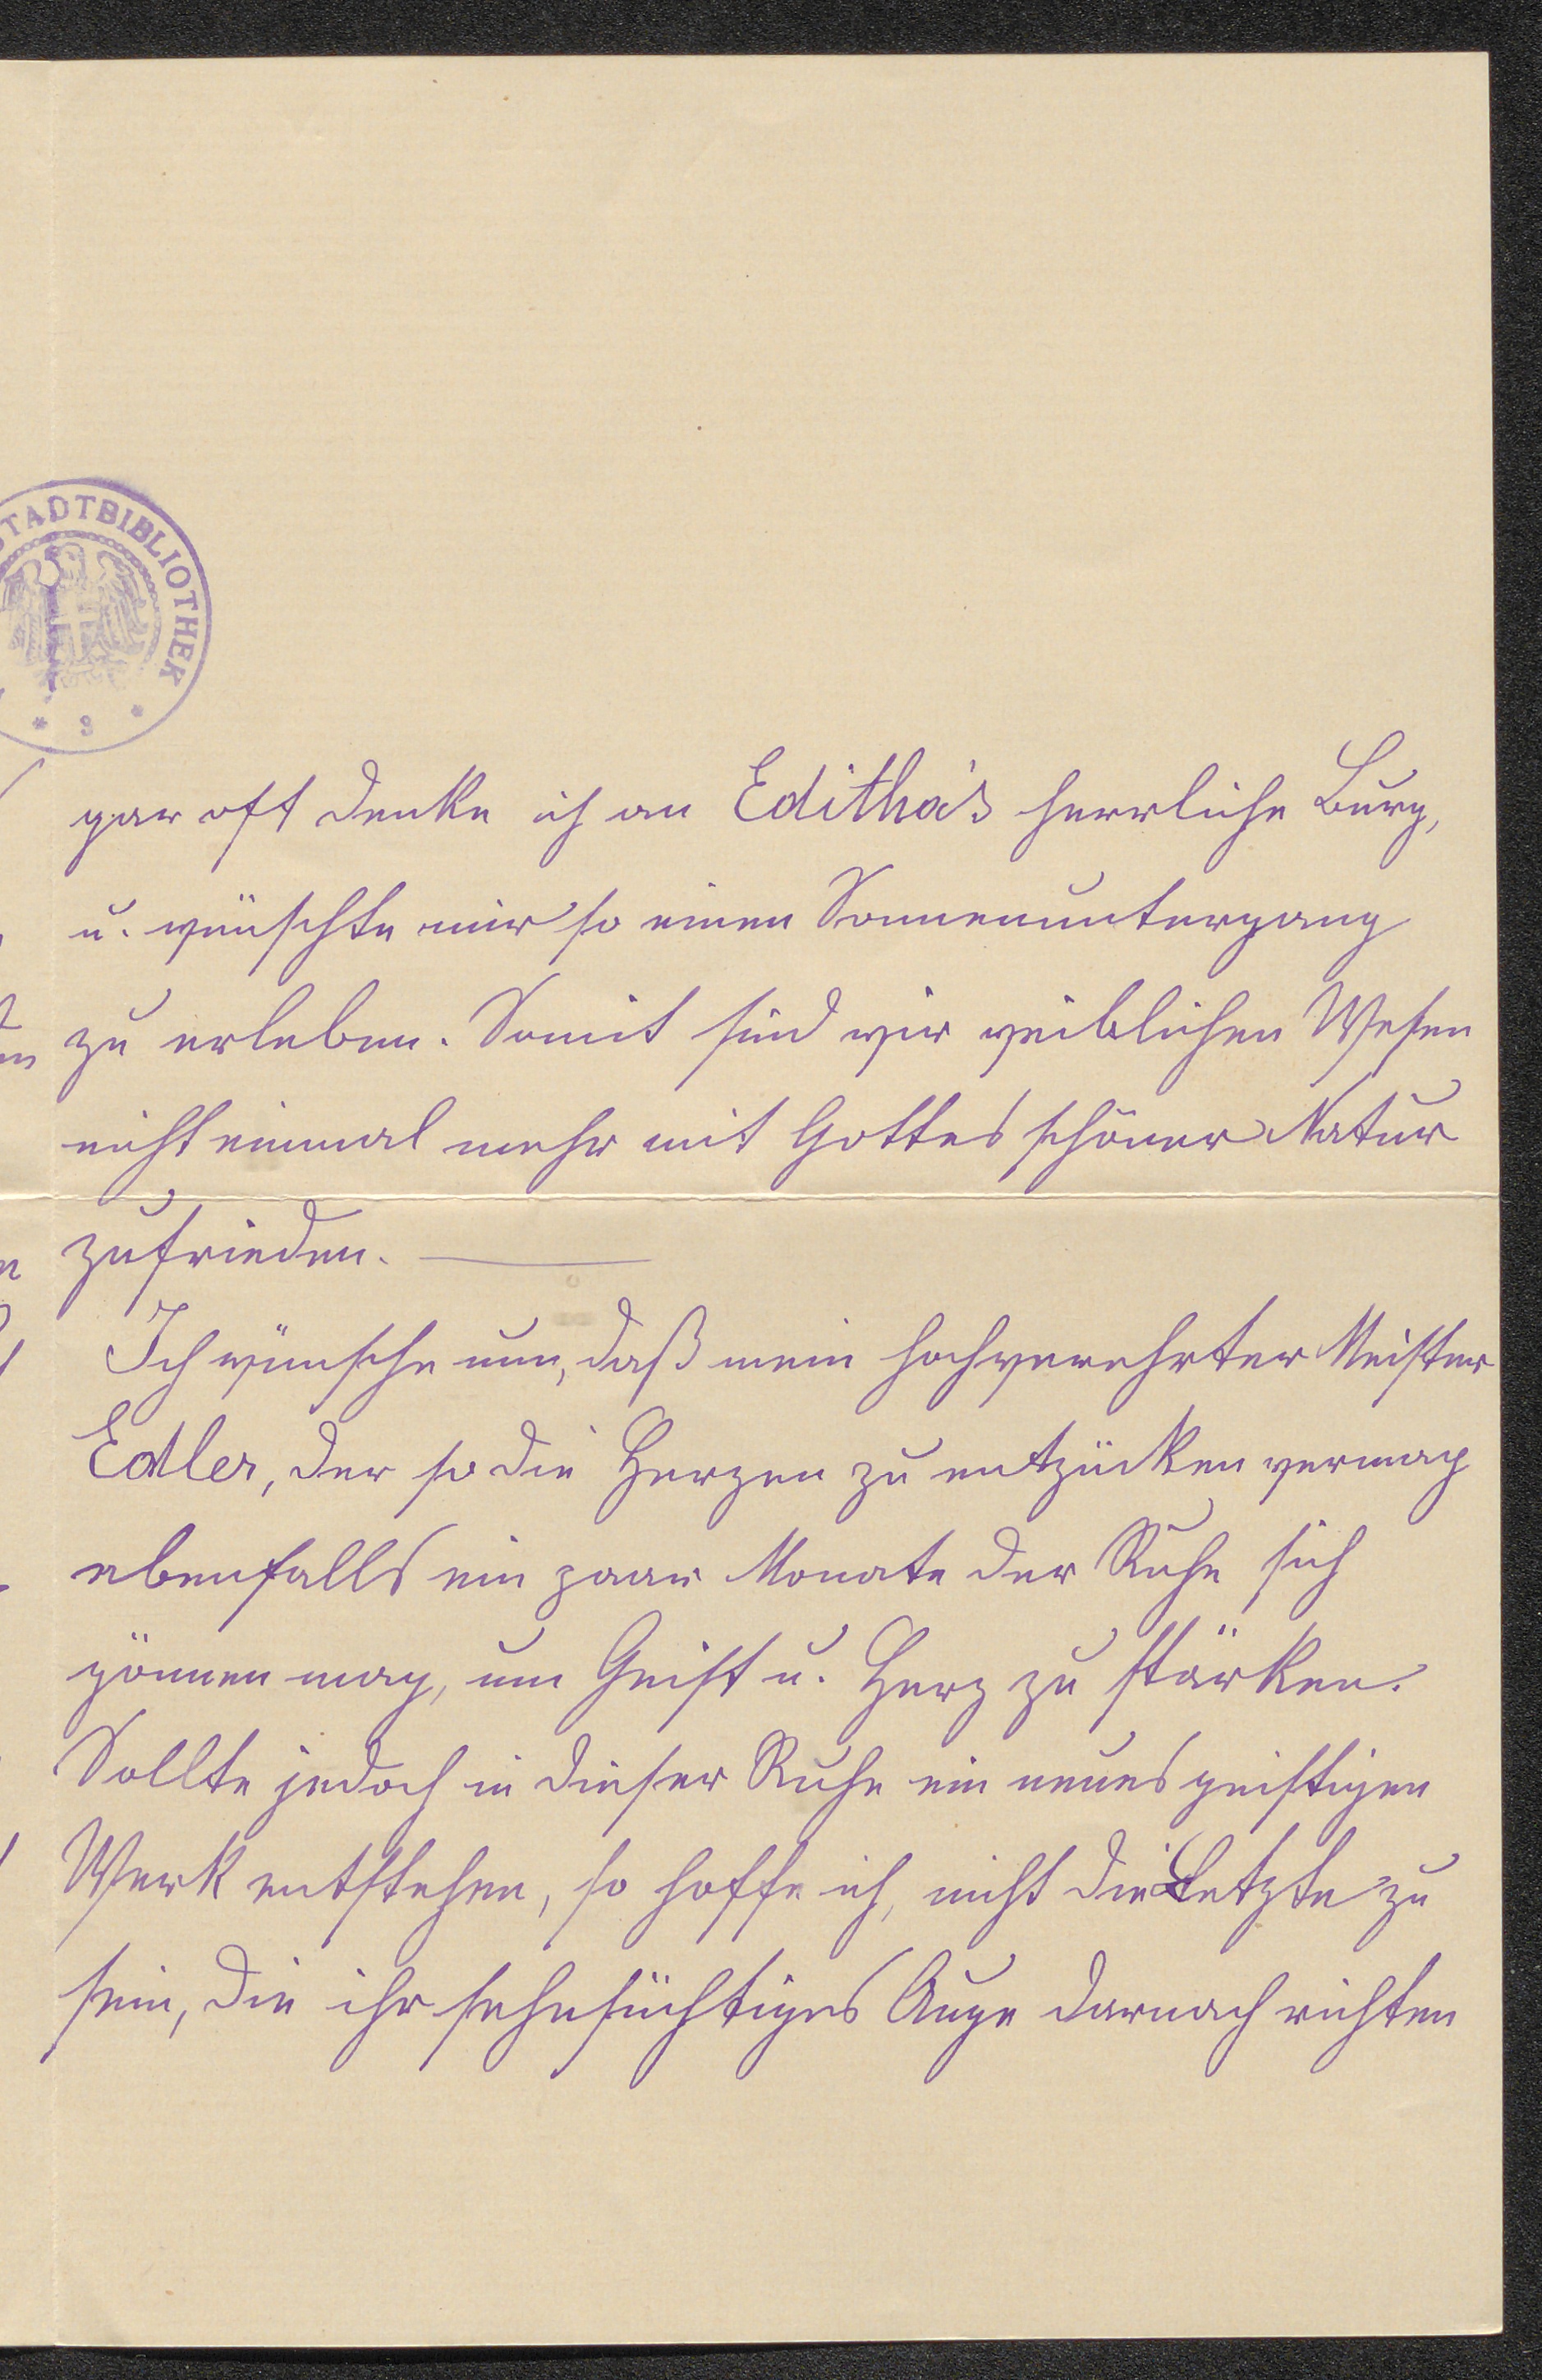 STADTBIBLIOTHEK
* 3 *
gar oft denke ich an Editha's herrliche Burg,
u. wünschte mir so einen Sonnenuntergang
zu erleben. Somit sind wir weiblichen Wesen
nicht einmal mehr mit Gottes schöner Natur
zufrieden. —
Ich wünsche nun, daß mein hochverehrter Meister
Edler, der so die Herzen zu entzücken vermag
ebenfalls ein paar Monate der Ruhe sich
gönnen mag, um Geist u. Herz zu stärken.
Sollte jedoch in dieser Ruhe ein neues geistigen
Werk entstehen, so hoffe ich, nicht die Letzte zu
sein, die ihr sehnsüchtiges Auge darnach richten